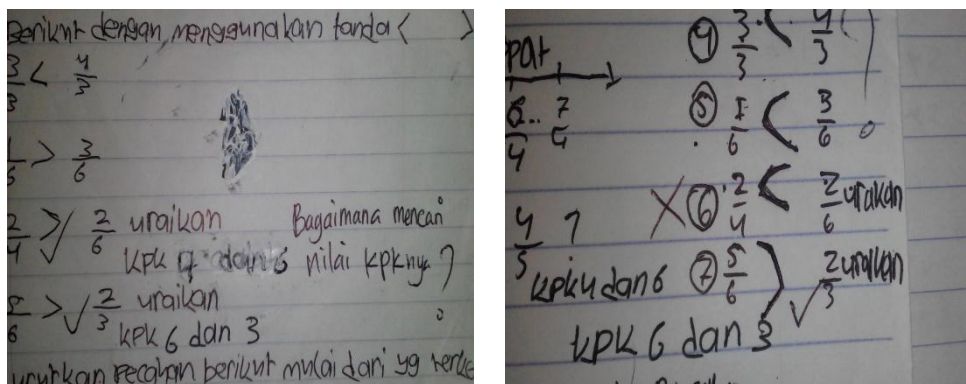 Berikut dengan menggunakan tanda < >
3/3 < 4/3
> 3/6
2/4 > √ 2/6 uraikan Bagaimana mencari
KPK 4 dan 6 nilai kpknya ?
6 > √ 2/3 uraikan
KPK 6 dan 3
urutkan pecahan berikut mulai dari yg
④ 3/3 < 4/3
7/4
⑤ 1/6 < 3/6
X ⑥ 2/4 < 2/6 urakan
4/5 ?
kpk 4 dan 6 ⑦ 5/6 > √ 2/3 uraikan
kpk 6 dan 3